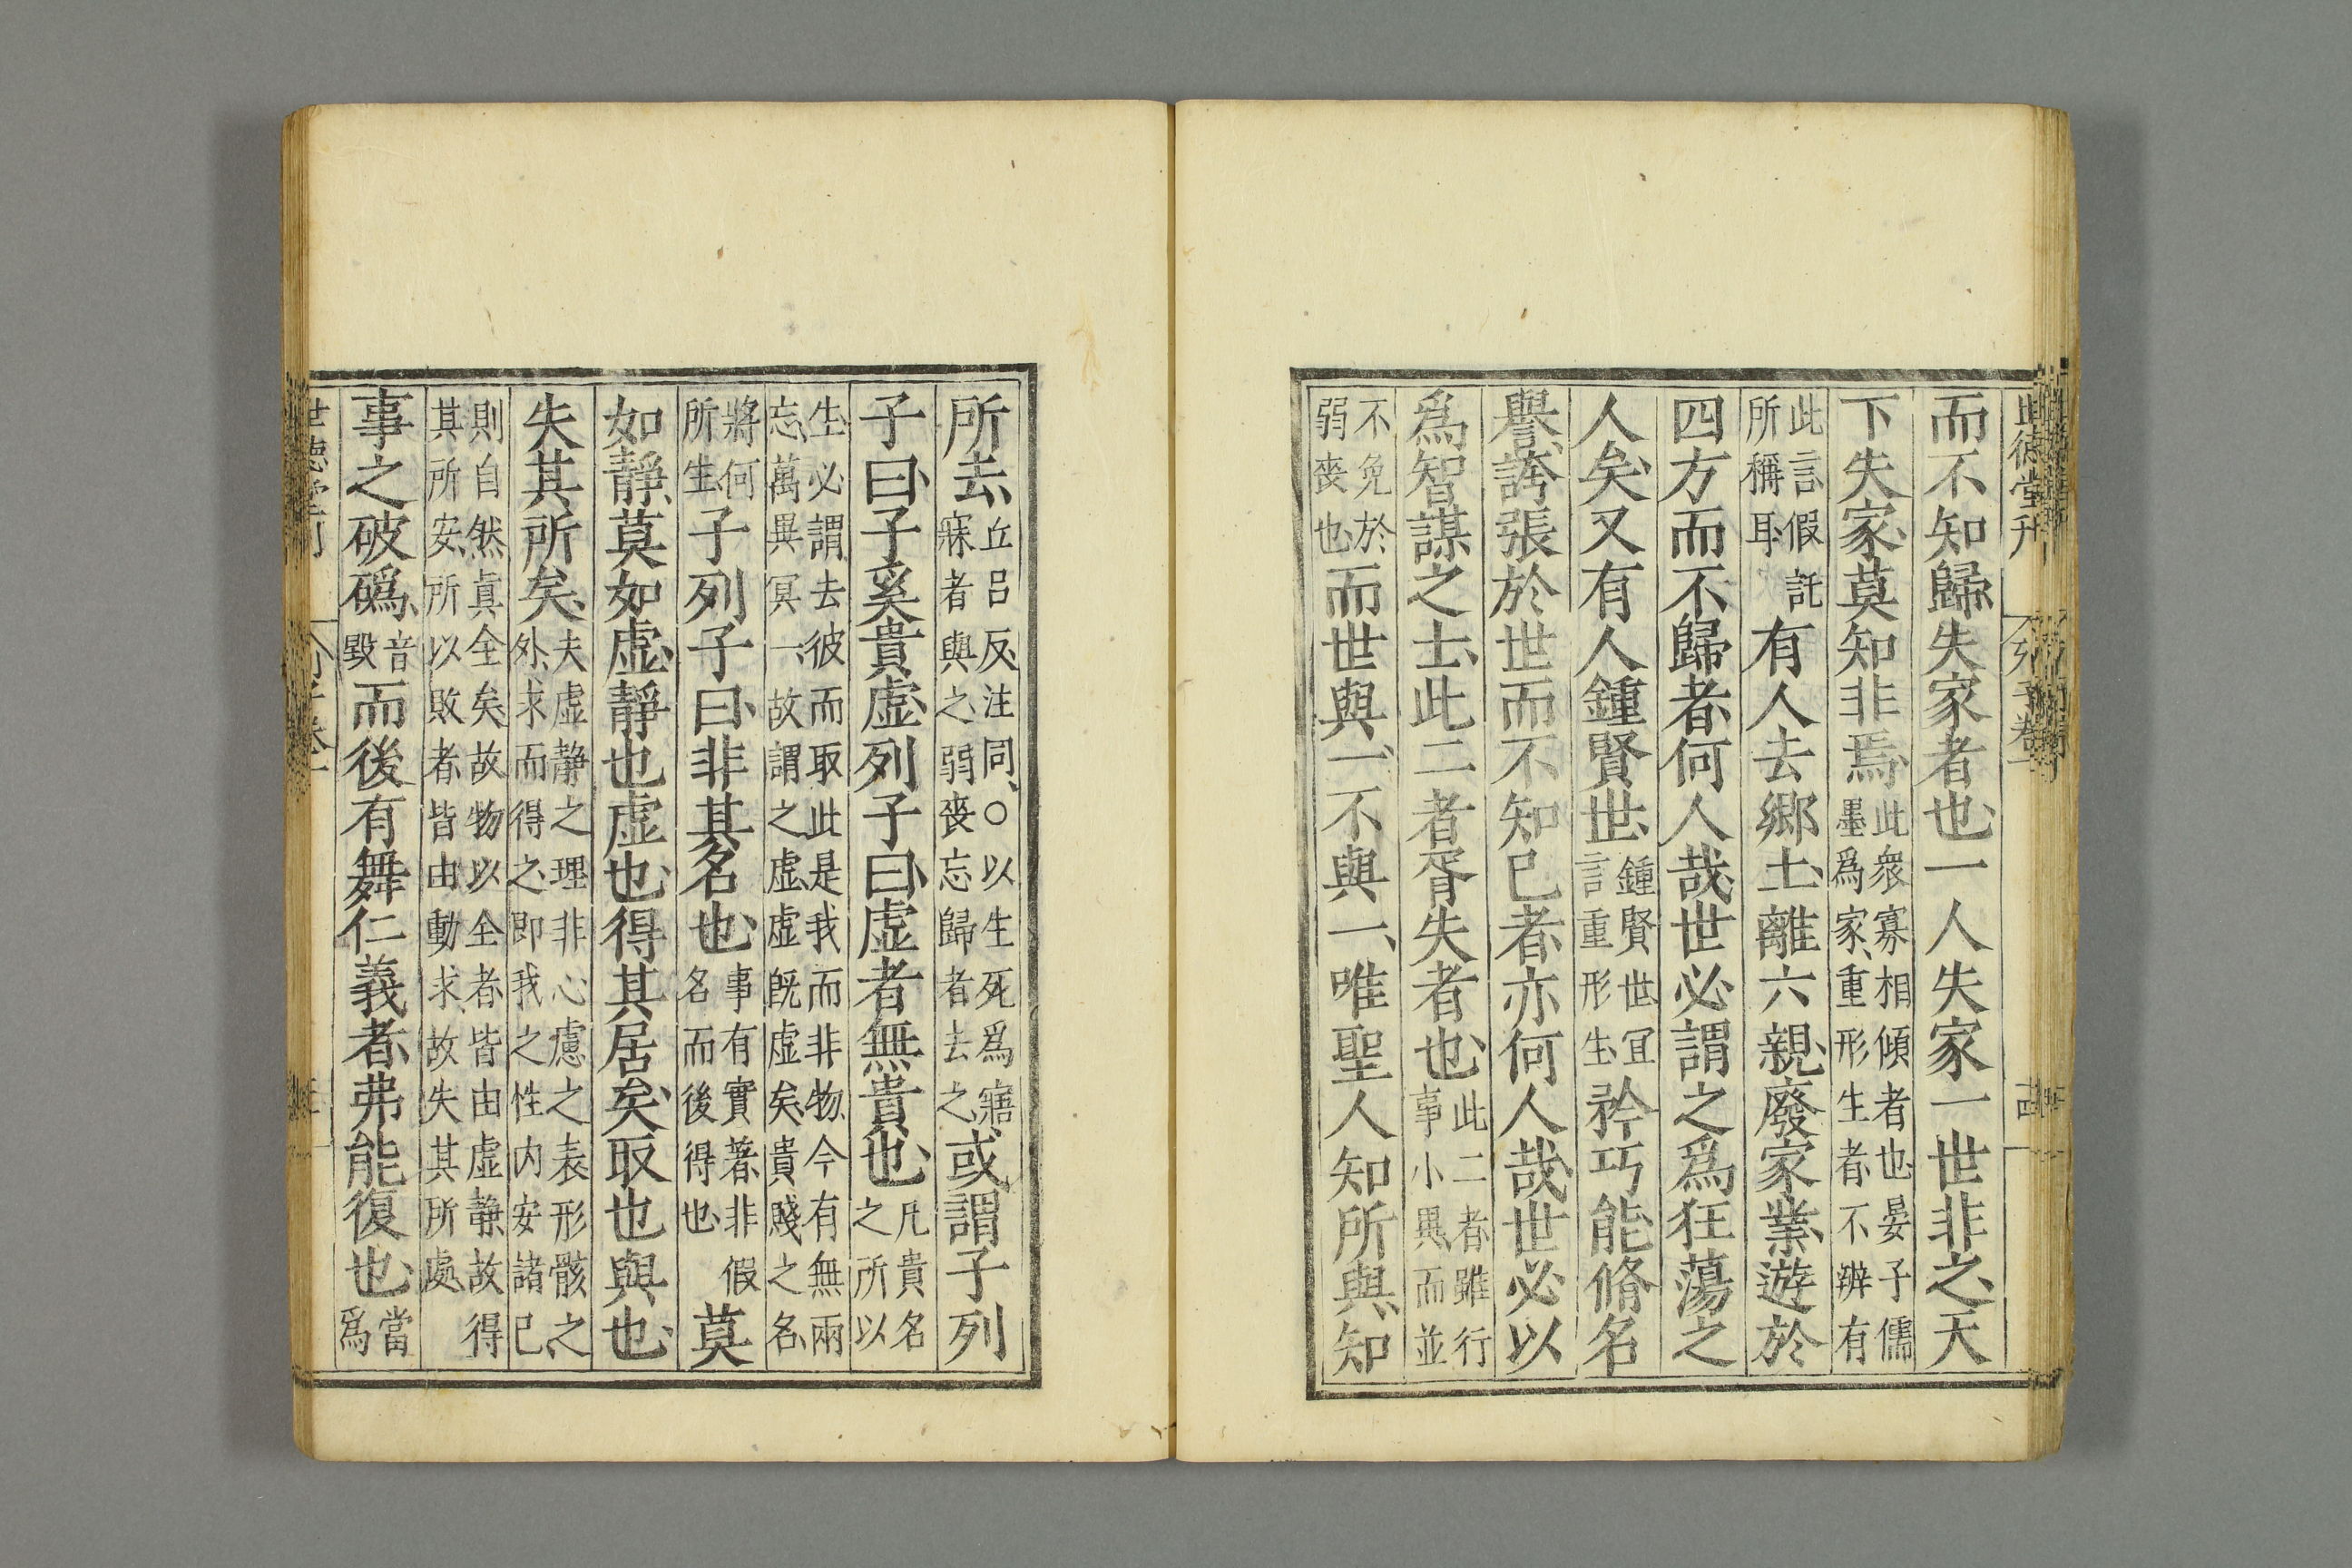 世德堂刊 列子卷一 十四
而不知歸失家者也一人失家一世非之天
下失家莫知非焉此衆寡相傾者也晏子儒墨爲家重形生者不辨有
此言假託所稱耳有人去鄉土離六親廢家業遊於
四方而不歸者何人哉世必謂之爲狂蕩之
人矣又有人鍾賢世鍾賢世冝言重形生矜巧能脩名
譽誇張於世而不知已者亦何人哉世必以
爲智謀之士此二者胥失者也此二者雖行事小異而並
不免於弱喪也而世與一不與一唯聖人知所與知
所去丘呂反注同○以生死爲寤寐者與之弱喪忘歸者去之或謂子列
子曰子奚貴虛列子曰虛者無貴也凡貴名之所以
生必謂去彼而取此是我而非物今有無兩忘萬異冥一故謂之虛虛旣虛矣貴賤之名
將何所生子列子曰非其名也事有實著非假名而後得也莫
如靜莫如虛靜也虛也得其居矣取也與也
失其所矣夫虛靜之理非心慮之表形骸之外求而得之即我之性内安諸已
則自然眞全矣故物以全者皆由虛靜故得其所安所以敗者皆由動求故失其所處
事之破䃣音毀而後有舞仁義者弗能復也當爲
世德堂刊 列子卷一